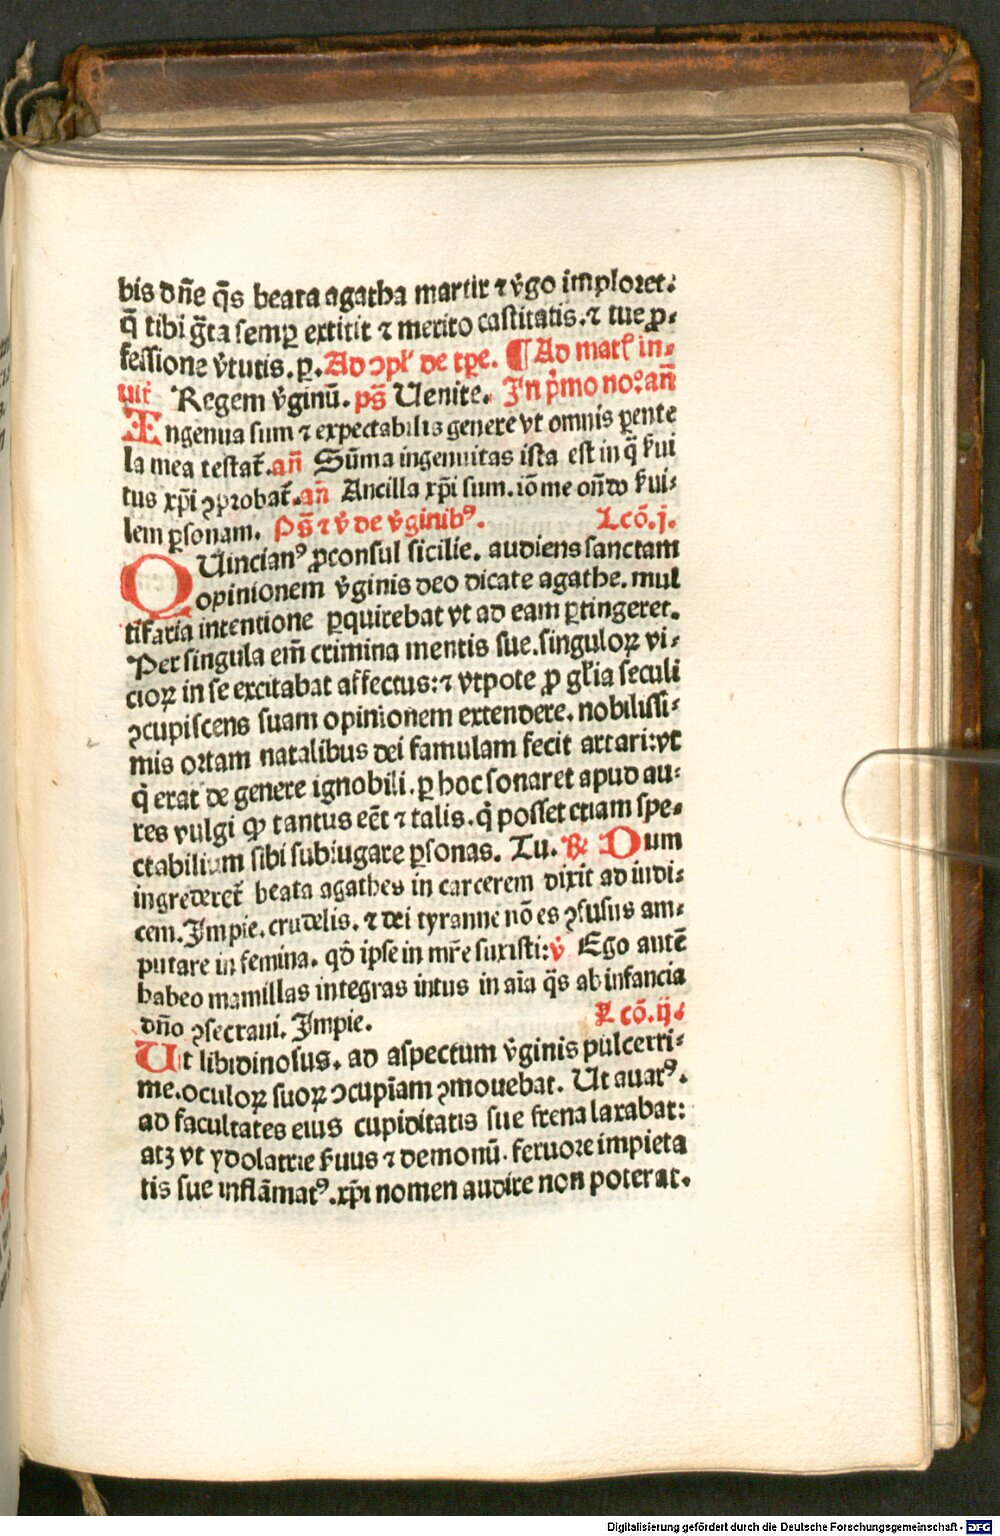 bis dn̄e q̄s beata agatha martir ⁊ v̓go imploret:
q̄ tibi gr̄ta semꝑ extitit ⁊ merito castitatis.⁊ tue ꝓ-
fessione v̓tutis.ꝑ. Ad ꝯpl' de tꝑe. ¶ Ad matſ in-
uit̄ Regem v̓ginū. ps̄ Uenite. In p̓mo noꝛ.an̄
Ingenua sum ⁊ expectabilis genere vt omnis ꝑente
la mea testat̄.an̄ Sūma ingenuitas ista est in q̄ s̓ui
tus xp̄i ꝯprobat̄.an̄ Ancilla xp̄i sum.iō me on̄do s̓ui-
lem ꝑsonam. Ps̄ ⁊ v̓ de v̓ginibꝰ. Lcō.j.
QUincianꝰ ꝓconsul sicilie. audiens sanctam
opinionem v̓ginis deo dicate agathe. mul
tifaria intentione ꝑquirebat vt ad eam ꝑtingeret.
Per singula em̄ crimina mentis sue.singuloꝝ vi-
cioꝝ in se excitabat affectus:⁊ vtpote ꝓ gl̓ia seculi
ꝯcupiscens suam opinionem extendere. nobilissi-
mis ortam natalibus dei famulam fecit artari:vt
q̓ erat de genere ignobili.ꝑ hoc sonaret apud au-
res vulgi ꝙ tantus eēt ⁊ talis.q̓ posset etiam spe-
ctabilium sibi subiugare ꝑsonas. Tu. ℟ Dum
ingrederet̄ beata agathes in carcerem dixit ad iudi-
cem.Impie.crudelis.⁊ dei tyranne nō es ꝯfusus am-
putare in femina. qd̄ ipse in mr̄e suxisti: v̓ Ego autē
habeo mamillas integras intus in aīa q̄s ab infancia
dn̄o ꝯsecraui. Impie. Lcō.ij.
Ut libidinosus. ad aspectum v̓ginis pulcerri-
me.oculoꝝ suoꝝ ꝯcupīam ꝯmouebat. Ut auarꝰ.
ad facultates eius cupiditatis sue frena laxabat:
atꝫ vt ydolatrie s̓uus ⁊ demonū. feruore impieta
tis sue inflāmatꝰ.xp̄i nomen audire non poterat.
Digitalisierung gefördert durch die Deutsche Forschungsgemeinschaft - DFG